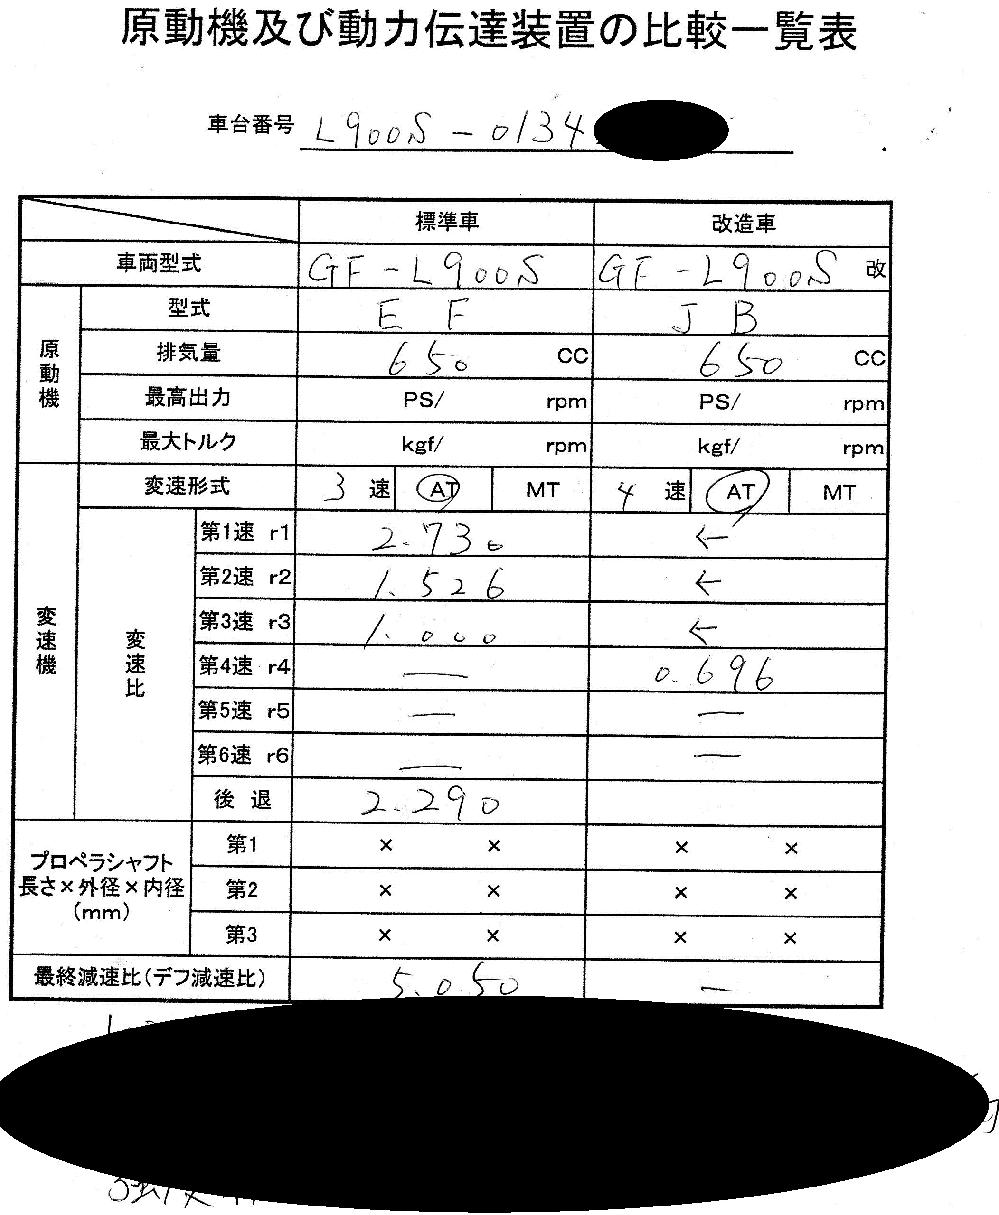 原動機及び動力伝達装置の比較一覧表
車台番号 L900S-0134
標準車 改造車
車両型式 GF-L900S GF-L900S 改
原動機
型式 E F J B
排気量 650 CC 650 CC
最高出力 PS/ rpm PS/ rpm
最大トルク kgf/ rpm kgf/ rpm
変速機
変速形式 3 速 AT MT 4 速 AT MT
変速比
第1速 r1 2.730 ←
第2速 r2 1.526 ←
第3速 r3 1.000 ←
第4速 r4 — 0.696
第5速 r5 — —
第6速 r6 — —
後 退 2.290
プロペラシャフト
長さ×外径×内径
(mm)
第1 × × × ×
第2 × × × ×
第3 × × × ×
最終減速比(デフ減速比) 5.050 —